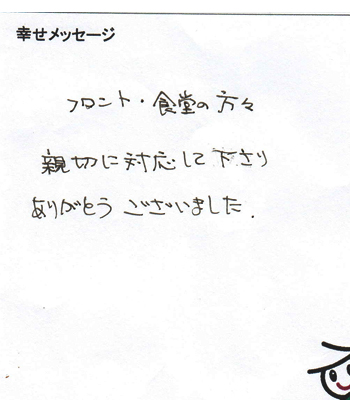 幸せメッセージ
フロント・食堂の方々
親切に対応して下さり
ありがとうございました.